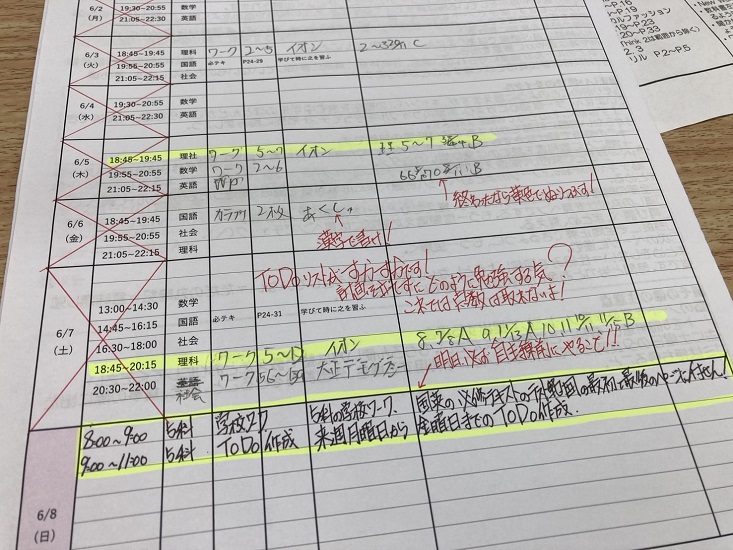 6/2
(月)
19:30~20:55 数学
21:05~22:30 英語
6/3
(火)
18:45~19:45 理科 ワーク 2~5 イオン
19:55~20:55 国語 必テキ P24-29 学びて時に之を習ふ
21:05~22:15 社会
6/4
(水)
19:30~20:55 数学
21:05~22:30 英語
6/5
(木)
18:45~19:45 理社 ワーク 5~7 イオン
19:55~20:55 数学 ワーク 2~6
21:05~22:15 英語
終わったなら蛍光でぬりつぶす!
6/6
(金)
18:45~19:45 国語 あくしゅ
19:55~20:55 社会
21:05~22:15 理科
漢字で書け!
ToDoリストがすかすかです!
計画を立てずにどのように勉強する気?
これでは点数は取れないよ!
6/7
(土)
13:00~14:30 数学
14:45~16:15 国語 必テキ P24-31 学びて時に之を習ふ
16:30~18:00 社会
18:45~20:15 理科 ワーク イオン
20:30~22:00 社会 ワーク 大正デモクラシー
明日必ず自主勉前にやること!!
6/8
(日)
8:00~9:00 5科 学校ワーク 5科の学校ワーク
9:00~11:00 5科 ToDo作成 来週月曜日から金曜日までのToDo作成.
~P.16
~P.19
カルファッション
P.19~P.23
P.20~P.33
2、3
リル P.2~P.5